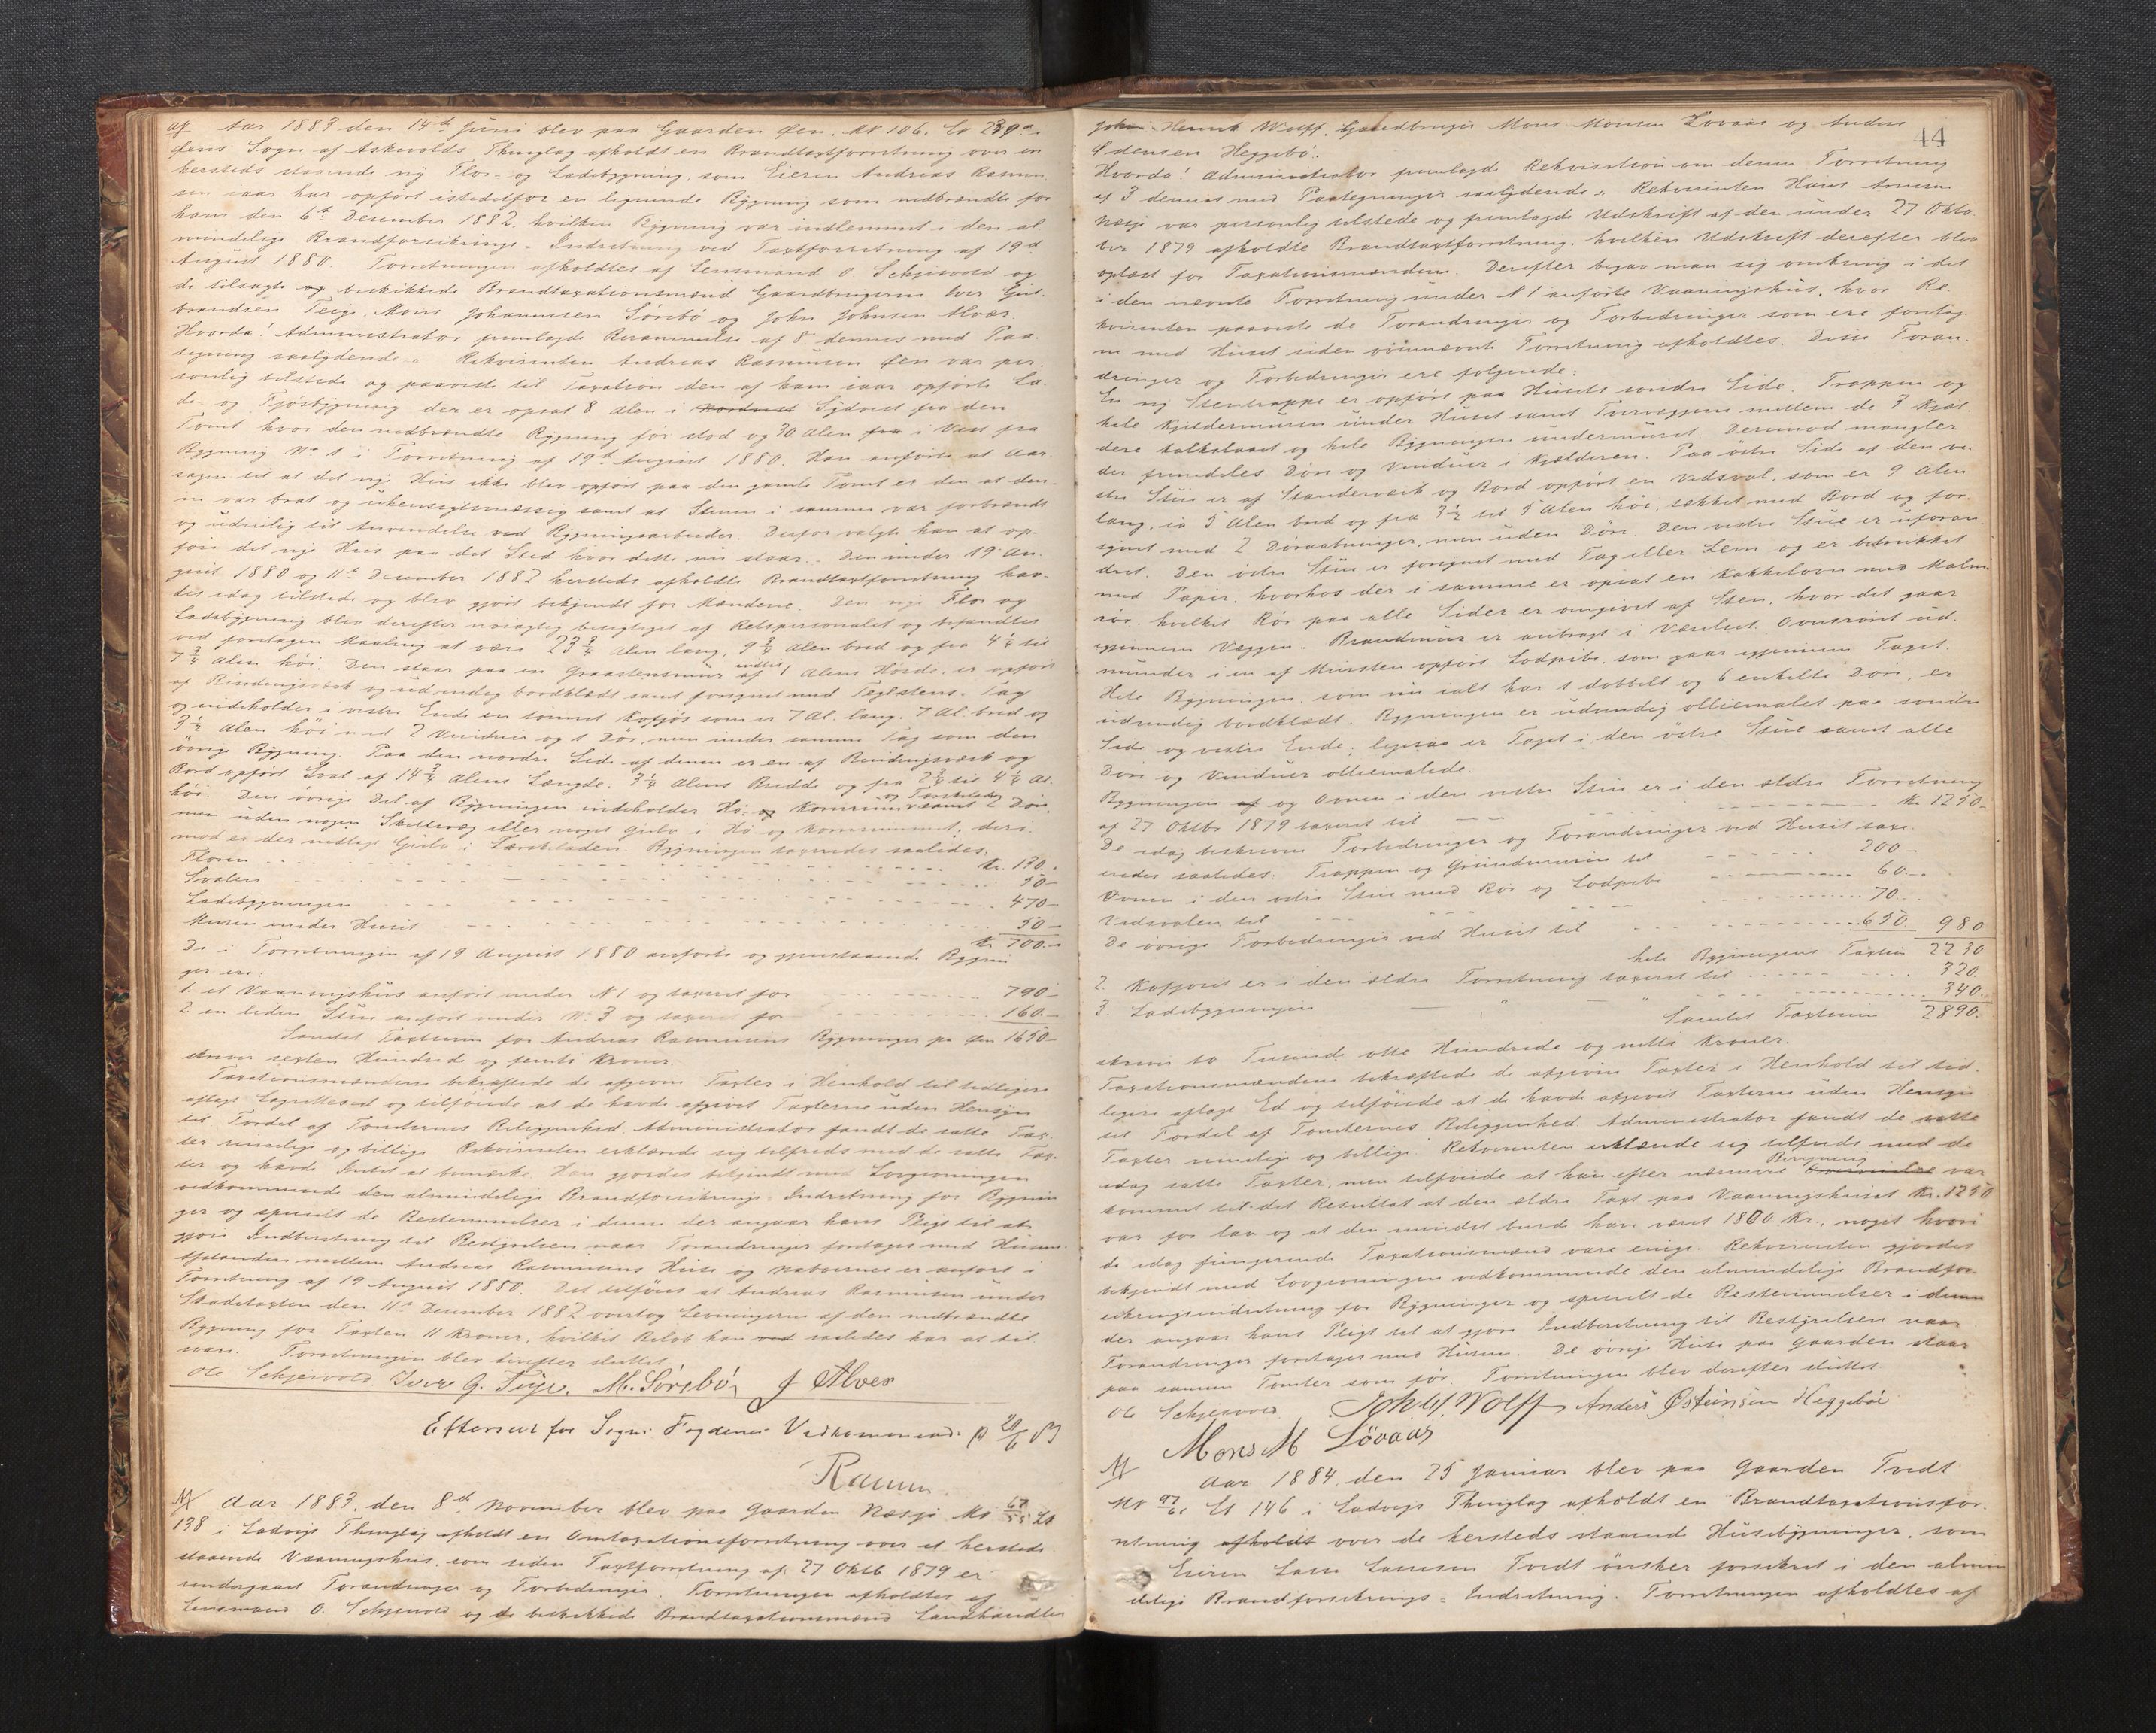 Aar 1883 den 14de Juni blev paa Gaarden Øen. M№ 106. Lb 239a
Øens Sogn af Askevolds Thinglag afholdt en Brandtaxtforretning over en
hersteds staaende ny Flor- og Ladebygning, som Eieren Andreas Rasmus-
sen iaar har opført istedetfor en lignende Bygning som nedbrændte for
ham den 6te Desember 1882, hvilken Bygning var indlemmet i den al-
mindelige Brandforsikrings-Indretning ved Taxtforretning af 19de
August 1880. Forretningen afholdtes af Lensmand O. Schjesvold og
de tilsagte og beskikkede Brandtaxationsmænd Gaardbrugerne Iver Gul-
brandsen Teige, Mons Johannessen Sørebø og John Johnsen Alvær.
Hvorda! Administrator fremlagde Berammelse af 8de dennes med Paa-
tegning saalydende. Rekvirenten Andreas Rasmussen Øen var per-
sonlig tilstede og paaviste til Taxation den af ham iaar opførte La-
de- og Fjøsbygning der er opsat 8 Alen i Nordvest Sydvest fra den
Tomt hvor den nedbrændte Bygning før stod og 30 Alen fra i Vest fra
Bygning No 1 i Forretning af 19de August 1880. Han anførte at Aar-
sagen til at det nye Hus ikke blev opført paa den gamle Tomt er den at den-
ne var brat og uhensigtsmæssig samt at Stenen i samme var forbrændt
og udulig til Anvendelse ved Bygningsarbeider. Derfor valgte han at op-
føre det nye Hus paa det Sted hvor dette nu staar. Den under 19 Au-
gust 1880 og 11te Desember 1882 hersteds afholdte Brandtaxtforretning hav-
des idag tilstede og blev gjort bekjendt for Mændene. Den nye Flor og
Ladebygning blev derefter nøiagtig besigtiget af Retspersonalet og befandtes
ved foretagen Maaling at være 23 3/4 Alen lang, 9 3/4 Alen bred og fra 4 1/4 til
7 3/4 Alen høi. Den staar paa en Graastensmur af indtil 1 Alens Høide, er opført
af Bindingsverk og udvendig bordklædt samt forsynet med Teglstens-Tag
og indeholder i vestre Ende en tømret Kofjøs som er 7 Al. lang, 7 Al. bred og
3 1/2 Alen høi med 2 Vinduer og 1 Dør, men under samme Tag som den
øvrige Bygning. Paa den nordre Side af denne er en af Bindingsverk og
Bord opført Sval af 14 3/4 Alens Længde, 3 1/4 Alens Bredde og fra 2 3/4 til 4 1/4 Al.
høi. Den øvrige Del af Bygningen indeholder Hø, og Kornrum og Tærskelade samt 2 Døre
men uden nogen Skillevæg eller noget Gulv i Hø og Kornrummet, deri-
mod er der nedlagt Gulv i Tærskeladen. Bygningen taxeredes saaledes:
Floren Kr. 130.
Svalen 50-
Ladebygningen 470-
Muren under Huset 50-
Kr. 700.-
De i Forretningen af 19 August 1880 anførte og gjenstaaende Bygnin-
ger ere:
1. et Vaaningshus anført under N 1 og taxeret for 790-
2. en liden Stue anført under N. 3 og taxeret for 160.-
Samlet Taxtsum for Andreas Rasmussens Bygninger pr Øen 1650-
skriver sexten Hundrede og femti Kroner.
Taxationsmændene bekræftede de afgivne Taxter i Henhold til tidligere
aflagt Lagretteed og tilføiede at de havde afgivet Taxterne uden Hensyn
til Fordel af Tomternes Beliggenhed. Administrator fandt de satte Tax-
ter rimelige og billige. Rekvirenten erklærede sig tilfreds med de satte Tax-
ter og havde Intet at bemærke. Han gjordes bekjendt med Lovgivningen
vedkommende den almindelige Brandforsikrings-Indretning for Bygnin-
ger og specielt de Bestemmelser i denne der angaar hans Pligt til at
gjøre Indberetning til Bestyrelsen naar Forandringer foretages med Husene.
Afstanden mellem Andreas Rasmussens Huse og Naboernes er anført i
Forretning af 19 August 1880. Det tilføies at Andreas Rasmussen under
Skadetaxten den 11te Desember 1882 overtog Levningerne af den nedbrændte
Bygning for Taxten 11 Kroner, hvilket Beløb han ved saaledes har at til-
svare. Forretningen blev derefter sluttet
Ole Schjesvold. Iver G. Teige. M. Sørebø J Alvær
Efterseet for Sogne Fogdens Vedkommende p 20/6 83
Raum
Aar 1883, den 8de November blev paa Gaarden Næsje M№ 67 Lb
138 i Ladvigs Thinglag afholdt en Omtaxationsforretning over et hersteds
staaende Vaaningshus, som siden Taxtforretning af 27 Oktb 1879 er
undergaaet Forandringer og Forbedringer. Forretningen afholdtes af
Lensmand O. Schjesvold og de beskikkede Brandtaxationsmænd Landhandler
44
Johan Henrik Wolff, Gaardbruger Mons Monsen Lovaas og Anders
Østensen Heggebø.
Hvorda! Administrator fremlagde Rekvisition om denne Forretning
af 3 dennes med Paategninger saalydende. Rekvirenten Hans Arnesen
Næsje var personlig tilstede og fremlagde Udskrift af den under 27 Okto-
ber 1879 afholdte Brandtaxtforretning, hvilken Udskrift derefter blev
oplæst for Taxationsmændene. Derefter begav man sig omkring i det
i den nævnte Forretning under N 1 anførte Vaaningshus, hvor Re-
kvirenten paaviste de Forandringer og Forbedringer som ere foretag-
ne med Huset siden ovennævnte Forretning afholdtes. Disse Foran-
dringer og Forbedringer ere følgende:
En ny Stentrappe er opført paa Husets søndre Side. Trappen og
hele Kjeldermuren under Huset samt Tvervæggene mellem de 3 Kjæl-
dere kalkslaaet og hele Bygningen undermuret. Derimod mangler
der fremdeles Døre og Vinduer i Kjælderen. Paa østre Side af den ve-
stre Stue er af Standerverk og Bord opført en Vedsval, som er 9 Alen
lang, ca 5 Alen bred og fra 3 1/2 til 5 Alen høi, tækket med Bord og for-
synet med 2 Døraabninger, men uden Døre. Den vestre Stue er uforan-
dret. Den østre Stue er forsynet med Tag eller Lem og er betrukket
med Papir, hvorhos der i samme er opsat en Kakkelovn med Malm-
rør, hvilket Rør paa alle Sider er omgivet af Sten, hvor det gaar
igjennem Væggen. Brandmur er anbragt i Værelset. Ovnsrøret ud-
munder i en af Mursten opført Lodpibe, som gaar igjennem Taget.
Hele Bygningen, som nu ialt har 1 dobbelt og 6 enkelte Døre, er
udvendig bordklædt. Bygningen er udvendig olliemalet paa søndre
Side og vestre Ende; ligesaa er Taget i den østre Stue samt alle
Døre og Vinduer olliemalede.
Bygningen af og Ovnen i den vestre Stue er i den ældre Forretning
af 27 Oktbr 1879 taxeret til Kr. 1250-
De idag beskrevne Forbedringer og Forandringer ved Huset taxe-
redes saaledes: Trappen og Grundmuren til 200-
Ovnen i den østre Stue med Rør og Lodpibe 60.-
Vedsvalen til 70.
De øvrige Forbedringer ved Huset til 650. 980
hele Bygningens Taxten 2230
2. Kofjøset er i den ældre Forretning taxeret til 320.
3. Ladebygningen " 340.
Samlet Taxtsum 2890.
skriver to Tusinde otte Hundrede og nitti Kroner.
Taxationsmændene bekræftede de afgivne Taxter i Henhold til tid-
ligere aflagt Ed og tilføiede at de havde afgivet Taxterne uden Hensyn
til Fordel af Tomternes Beliggenhed. Administrator fandt de satte
Taxter rimelige og billige. Rekvirenten erklærede sig tilfreds med de
idag satte Taxter, men tilføiede at han efter nærmere Beregning var
kommet til det Resultat at den ældre Taxt paa Vaaningshuset Kr. 1250
var for lav og at den mindst burde have været 1800 Kr., noget hvori
de idag fungerende Taxationsmænd vare enige. Rekvirenten gjordes
bekjendt med Lovgivningen vedkommende den almindelige Brandfor-
sikringsindretning for Bygninger og specielt de Bestemmelser i denne
der angaar hans Pligt til at gjøre Indberetning til Bestyrelsen naar
Forandringer foretages med Husene. De øvrige Huse paa Gaarden staar
paa samme Tomter som før. Forretningen blev derefter sluttet
Ole Schjesvold. Joh. H. Wolff Anders Østensen Heggebøe
Mons M Løvaas
Aar 1884, den 25 Januar blev paa Gaarden Tvedt
M№ 97 Lb 146 i Ladvigs Thinglag afholdt en Brandtaxationsfor-
retning afholdt over de hersteds staaende Husebygninger, som
Eieren Lasse Lassesen Tvedt ønsker forsikret i den almin-
delige Brandforsikrings-Indretning. Forretningen afholdtes af